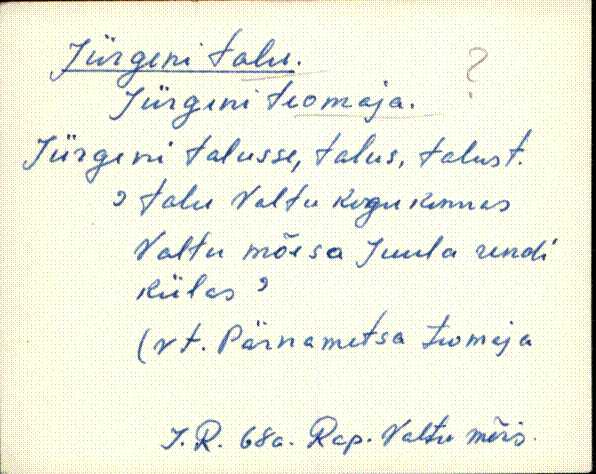 Jürgeni talu.
?
Jürgeni teomaja.
Jürgeni talusse, talus, talust.
, talu Valtu kogukonnas
Valtu mõisa Juula rendi
külas ,
(vt. Pärnametsa teomaja
J. R. 68a. Rap. Valtu mõis.